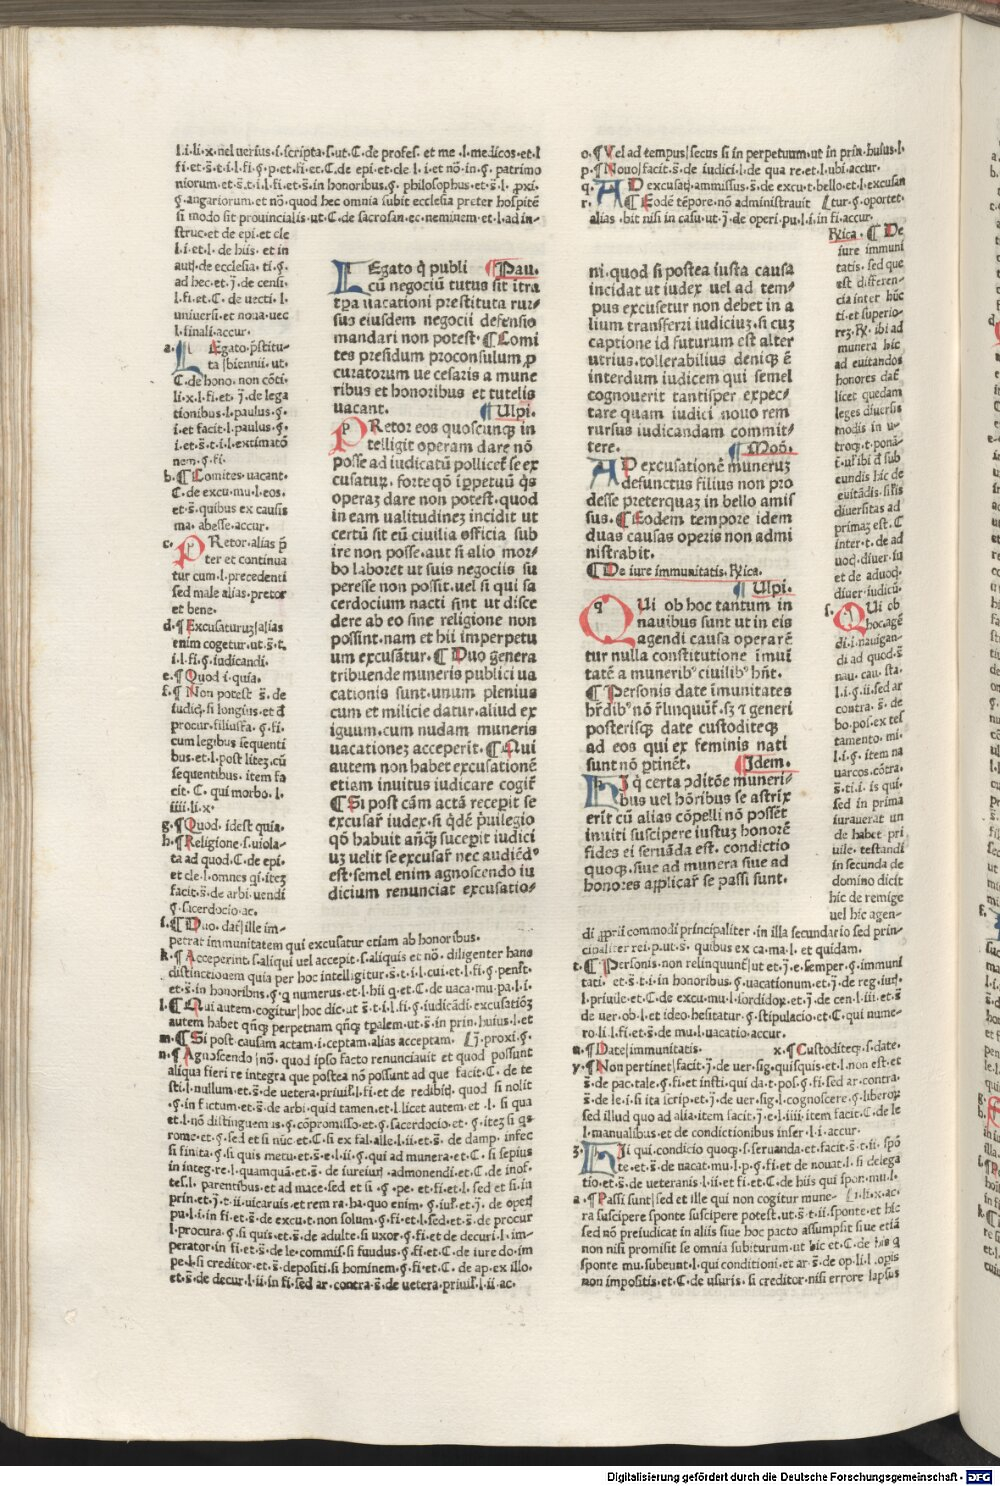 l.i.li.x.nel uerius.i.scripta.s.ut.C.de profes. et me.l.medicos.et.l
fi.et.s̄.t.i.l.fi.ꝯ.p.et.fi.et.C.de epi.et cle.l.i.et nō.in.ꝯ. patrimo
niorum.et.s̄.t.i.l.fi.et.s̄.in honoribus.ꝯ. philosophus.et.s̄.l. ꝓxi.
ꝯ.angariorum.et nō.quod hec omnia subit ecclesia preter hospitē
si modo sit prouincialis.ut.C.de sacrosan.ec.neminem.et.l.ad in-
struc.et de epi.et cle
l.i.et.l. de hiis. et in
autj.de ecclesia. ti.ꝯ.
ad hec.et.j̄.de censi.
l.fi.et.C. de uecti. l.
uniuersi.et noua uec
l.finali.accur.
a. LEgato.p̄stitu-
ta|biennii. ut.
C.de hono. non cōti.
li.x.l.fi.et. j̄.de lega
tionibus.l.paulus.ꝯ.
i.et facit.l.paulus.ꝯ.
i.et.s̄.t.i.l.extimatō
nem.ꝯ.fi.
b.¶Comites.uacant.
C.de excu.mu.l.eos.
et.s̄.quibus ex causis
ma. abesse.accur.
c. PRetor.alias p̄
ter et continua
tur cum.l.precedenti
sed male alias.pretor
et bene.
d.¶Excusaturuz|alias
enim cogetur.ut.s̄.t.
i.l.fi.ꝯ.iudicandi.
e.¶Quod.i.quia.
f.¶Non potest s̄. de
iudiꝗ.si longius.et đ
procur.filiusfa. ꝯ.fi.
cum legibus sequenti
bus.et.l.post litez.cū
sequentibus. item fa
cit. C. qui morbo. l.
iiii.li.x.
g.¶Quod. idest quia.
h.¶Religione.s.uiola-
ta ad quod.C.de epi.
et cle.l.omnes qi.itez
facit.s̄.de arbi.uendi
ꝯ.sacerdocio.ac.
i.¶Duo. dat̄|ille im-
petrat immunitatem qui excusatur etiam ab honoribus.
k.¶Acceperint.s.aliqui uel accepit.s.aliquis et nō. diligenter hanc
distinctionem quia per hoc intelligitur.s̄.t.i.l.cui.et.l.fi.ꝯ penl̄t.
et.s̄.in honoribus.ꝯ.q numerus.et.l.hii q.et.C.de uaca.mu.pa.l.i.
l.¶Qui autem.cogitur|hoc dic.ut s̄.t.i.l.fi.ꝯ.iudicādi.excusatiōz
autem habet qn̄ꝗ perpetnam qn̄ꝗ tp̄alem.ut.s̄.in prin.huius.l.et
m.¶Si post causam actam.i.ceptam.alias acceptam. (j̄.proxi.ꝯ.
n.¶Agnoscendo|nō. quod ipso facto renunciauit et quod possunt
aliqua fieri re integra que postea nō possunt ad que facit.C. de te
sti.l.nullum.et.s̄.de uetera.priuil̄.l.fi.et de redibiꝗ. quod si nolit
.ꝯ.in fictum.et.s̄.de arbi.quid tamen.et.l.licet autem.et .l. si qua
et.l.nō distinguem īs.ꝯ.cōpromisso.et.ꝯ.sacerdocio.et. ꝯ.itez.si qs
rome.et.ꝯ.sed et si nūc.et.C.si ex fal.alle.l.ii.et.s̄. de damp. infec
si finita.ꝯ.si quis metu.et.s̄.e.l.ii.ꝯ.qui ad munera.et.C. si sepius
in integ.re.l.quamquā.et.s̄. de iureiur̄ .admonendi.et.C. de inof.
tes̄.l. parentibus.et ad mace.sed et si .ꝯ .pe. et fi.et.l. sed et si.in
prin.et.j̄.t.ii.uicarius.et rem ra.ha.quo enim. ꝯ.iul̄.et.j̄. de oper̄
pu.l.i.in fi.et.s̄.de excu.t.non solum.ꝯ.fi.et.l.sed.et.s̄.de procur
l.procura.ꝯ.si quis.et.s̄.de adulte.si uxor.ꝯ.fi.et de decuri.l. im-
perator.in fi.et.s̄.de le.commis̄.si fuudus.ꝯ.fi.et.C.de iure do.im
pe.l.si creditor.et s̄.depositi.si hominem.ꝯ.fi.et.C. de ap.ex illo.
et.s̄.de decur.l.ii.in fi.sed ar. contra.s̄.de uetera.priuil̄.l.ii.ac.
LEgato q̄ publi ¶Pau.
cū negociū tutus sit ītra
tp̄a uacationi prestituta rur-
sus eiusdem negocii defensio
mandari non potest.¶Comi
tes presidum proconsulum ꝓ
curatorum ue cesaris a mune
ribus et honoribus et tutelis
uacant. ¶Ulpi.
PRetor eos quoscunꝗ in
telligit operam dare nō
posse ad iudicatū pollicet̄ se ex
cusatur̄. forteqō īꝑpetuū q̄s
operaz dare non potest.quod
in eam ualitudinez incidit ut
certū sit eū ciuilia officia sub
ire non posse.aut si alio mor-
bo laboret ut suis negociis su
peresse non possit.uel si qui sa
cerdocium nacti sint ut disce
dere ab eo sine religione non
possint.nam et hii imperpetu
um excusātur.¶Duo genera
tribuende muneris publici ua
cationis sunt.unum plenius
cum et milicie datur.aliud ex
iguum.cum nudam muneris
uacationez acceperit.¶Qui
autem non habet excusationē
etiam inuitus iudicare cogit̄
¶Si post cām actā recepit se
excusar̄ iudex.si q̄dē p̄uilegio
qō habuit an̄ꝗ suscepit iudici
uz uelit se excusar̄ nec audiēd⁹
est.semel enim agnoscendo iu
dicium renunciat excusatio-
o.¶Uel ad tempus|secus si in perpetuum.ut in prin.huius.l.
p.¶Nouo|facit.s̄.de iudici.l.de qua re.et.l.ubi.accur.
q. AD excusatj.ammissus.s̄.de excu.t.bello.et.l.excusan
r. ¶Eodē tēpore.nō administrauit (tur.ꝯ.oportet.
alias .bit nisi in casu.ut j̄.de operi.pu.l.i.in fi.accur.
ni.quod si postea iusta causa
incidat ut iudex uel ad tem-
pus excusetur non debet in a
lium transferri iudiciuz.si cuz
captione id futurum est alter
utrius.tollerabilius deniqꝫ ē
interdum iudicem qui semel
cognouerit tantisper expec-
tare quam iudici nouo rem
rursus iudicandam commit-
tere. ¶Moō.
AD excusationē muneruz
defunctus filius non pro
desse preterquaz in bello amis
sus.¶Eodem tempore idem
duas causas operis non admi
nistrabit.
¶De iure immunitatis. Rica.
¶Ulpi.
QUi ob hoc tantum in
nauibus sunt ut in eis
agendi causa operarē
tur nulla constitutione īmuī
tatē a munerib⁹ ciuilib⁹ hn̄t.
¶Personis date īmunitates
hr̄dib⁹ nō r̄linquūt̄.sꝫ ⁊ generi
posterisqꝫ date custoditeqꝫ
ad eos qui ex feminis nati
sunt nō ꝑtinēt. ¶Idem.
HIj q̄ certa ꝯditōe muneri-
bus uel hōribus se astrix
erīt cū alias cōpelli nō possēt
inuiti suscipere iustuz honorē
fides ei seruāda est. condictio
quoqꝫ.siue ad munera siue ad
honores applicar̄ se passi sunt.
Rica. ¶De
iure immuni
tatis. sed que
est differen-
cia inter hūc
ti.et superio-
rez.R.ibi ad
munera hic
ad euitandos
honores dat̄
licet quedam
leges diuersis
modis in u-
troqꝫ.t.ponā-
t̄.uł ibi đ sub
eundis hic de
euitādis.silis
diuersitas ad
primaz est.C
inter.t.de ad
uoꝗ.diuer.iu
et de aduoꝗ.
diuer.iudicū.
s. QUi ob
hoc.agē
di.i.nauigan-
di ad quod.s̄
nau. cau. sta.
l.i.ꝯ.ii.sed ar
contra. s̄. de
bo.pos.ex tes
tamento. mi.
l.i.ꝯ. item na
uarcos.cōtra.
s̄.ti.i. is qui.
sed in prima
iurauerat un
de habet pri
uile. testandi
in secunda de
domino dicit
hic de remige
uel hic agen-
di ꝓprii commodi principaliter.in illa secundario sed prin-
cipaliter rei.p.ut.s̄. quibus ex ca.ma.l. et quidam.
t.¶Personis non relinquunt̄|ut et.j̄.e.semper.ꝯ.immuni
tati. et.s̄.t.i.in honoribus.ꝯ.uacationum.et.j̄.de reg.iur̄.
l.priuile.et.C.de excu.mu.l.iordidox.et.j̄.de cen.l.iii.et.s̄
de uer.ob.l.et ideo.hesitatur.ꝯ.stipulacio.et.C.qui nume-
ro.li.l.fi.et.s̄.de mu.l.uacatio.accur.
u.¶Date|immunitatis. x.¶Custoditeqꝫ.s.date.
y.¶Non pertinet|facit.j̄.de uer.sig.quisquis.et.l.non est.et
s̄.de pac.tale.ꝯ.fi.et insti.qui da.t.pos.ꝯ.fi.sed ar.contra.
s̄.de le.i.si ita scrip.et.j̄.de uer.sig.l.cognoscere.ꝯ.liberoꝝ
sed illud quo ad alia.item facit.j̄.e.l.iiii.item facit.C.de le
l.manualibus.et de condictionibus inser.l.i.accur.
z. HIi qui.condicio quoqꝫ.s.seruanda.et facit.s̄.t.ii.spō
te.et.s̄.de uacat.mu.l.p.ꝯ.fi.et de nouat.l.si delega
tio.et.s̄.de ueteranis.l.ii.et fi.et.C.de hiis qui spon.mu.l.
a.¶Passi sunt|sed et ille qui non cogitur mune- (i.li.x.ac.
ra suscipere sponte suscipere potest.ut.s̄.t.ii.sponte.et hic
sed nō preiudicat in aliis siue hoc pacto assumpsit siue etiā
non nisi promisit se omnia subiturum.ut hic et.C.de his q̄
sponte mu.subeunt.l.qui conditioni.et ar s̄.de op.li.l.opis
non impositis.et.C.de usuris.si creditor.nisi errore lapsus
Digitalisierung gefördert durch die Deutsche Forschungsgemeinschaft - DFG